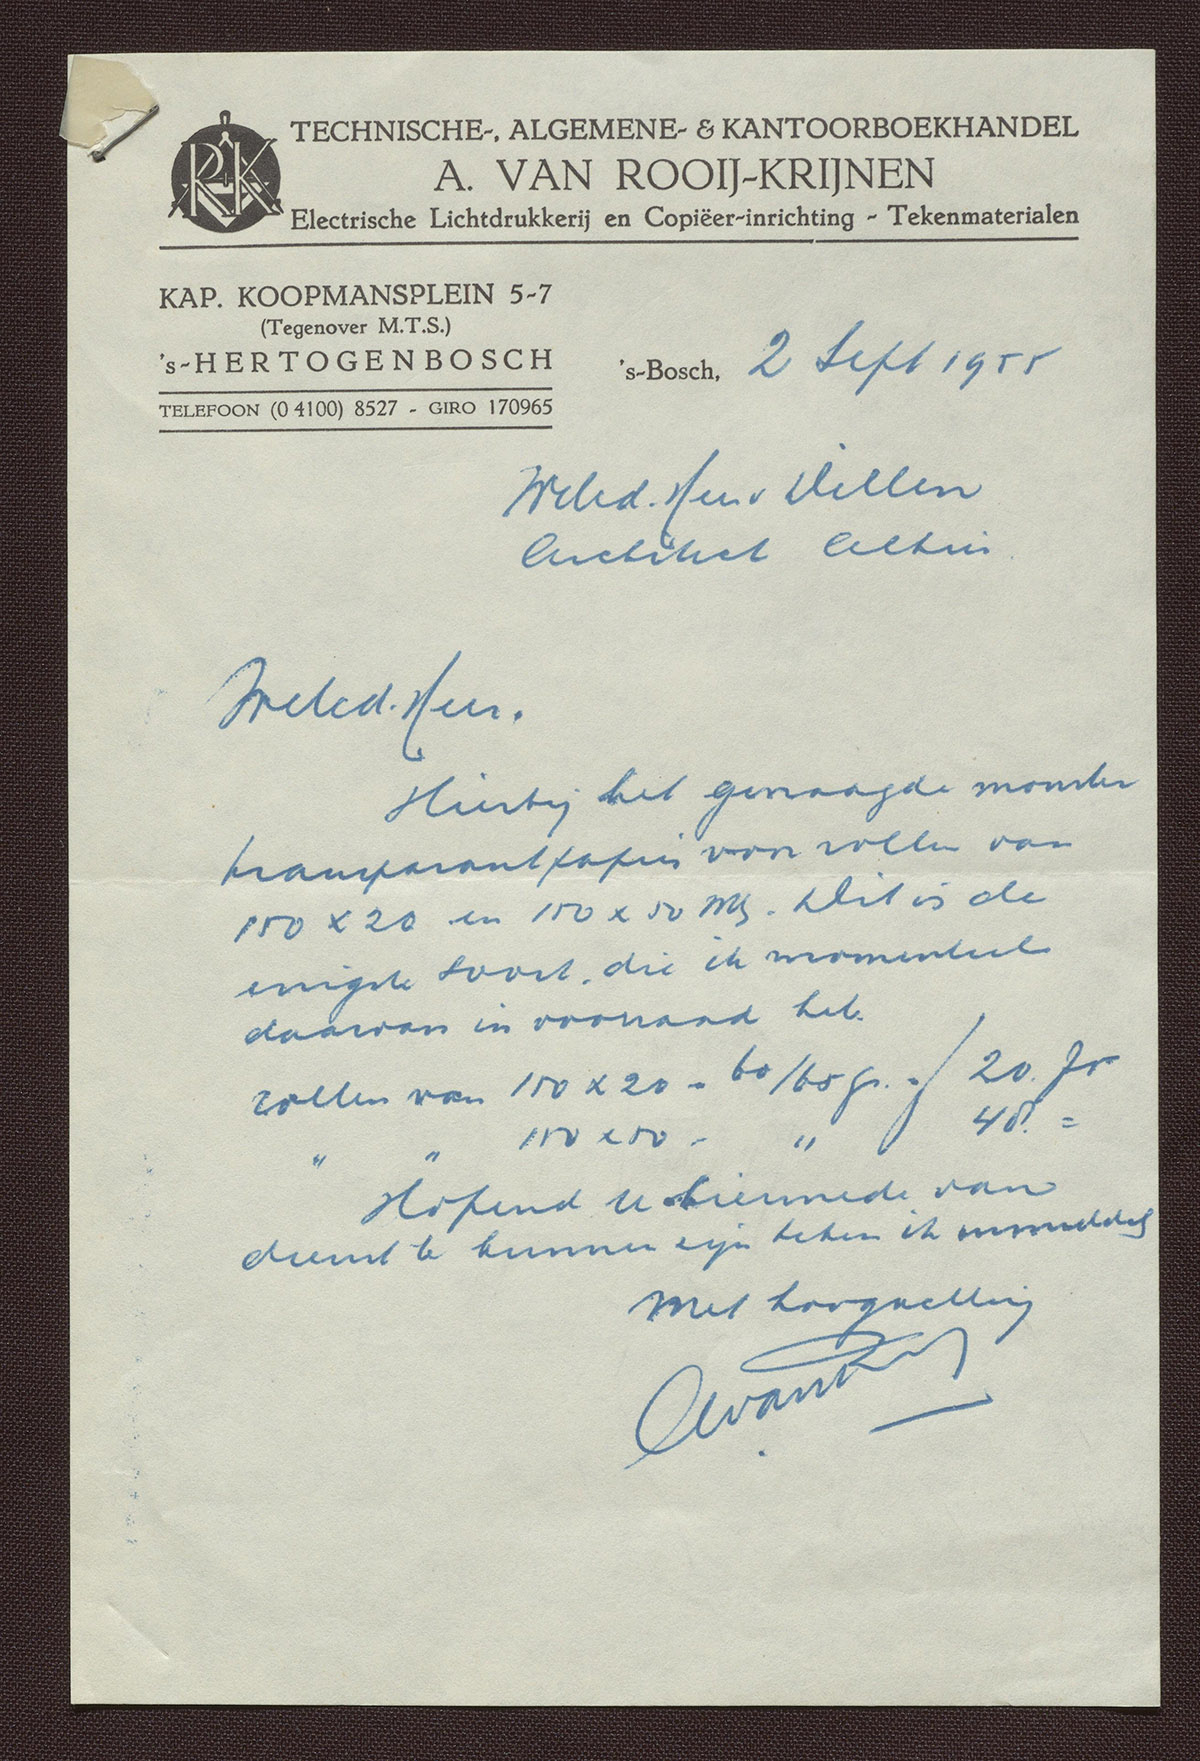 RK
TECHNISCHE-, ALGEMENE- & KANTOORBOEKHANDEL
A. VAN ROOIJ-KRIJNEN
Electrische Lichtdrukkerij en Copiëer-inrichting - Tekenmaterialen
KAP. KOOPMANSPLEIN 5-7
(Tegenover M.T.S.)
's-HERTOGENBOSCH
TELEFOON (0 4100) 8527 - GIRO 170965
's-Bosch, 2 Sept 1955
Weled. Heer
Architect
Weled. Heer.
Hierbij het gevraagde monster
transparantpapier voor rollen van
150 x 20 en 150 x 50 M. Dit is de
enigste soort, die ik momenteel
daarvan in voorraad heb.
rollen van 150 x 20 - 60/65 gr. - f 20.
" " 150 x 50 - " 48. =
Hopend U hiermede van
dienst te kunnen zijn teken ik inmiddels
Met hoogachting